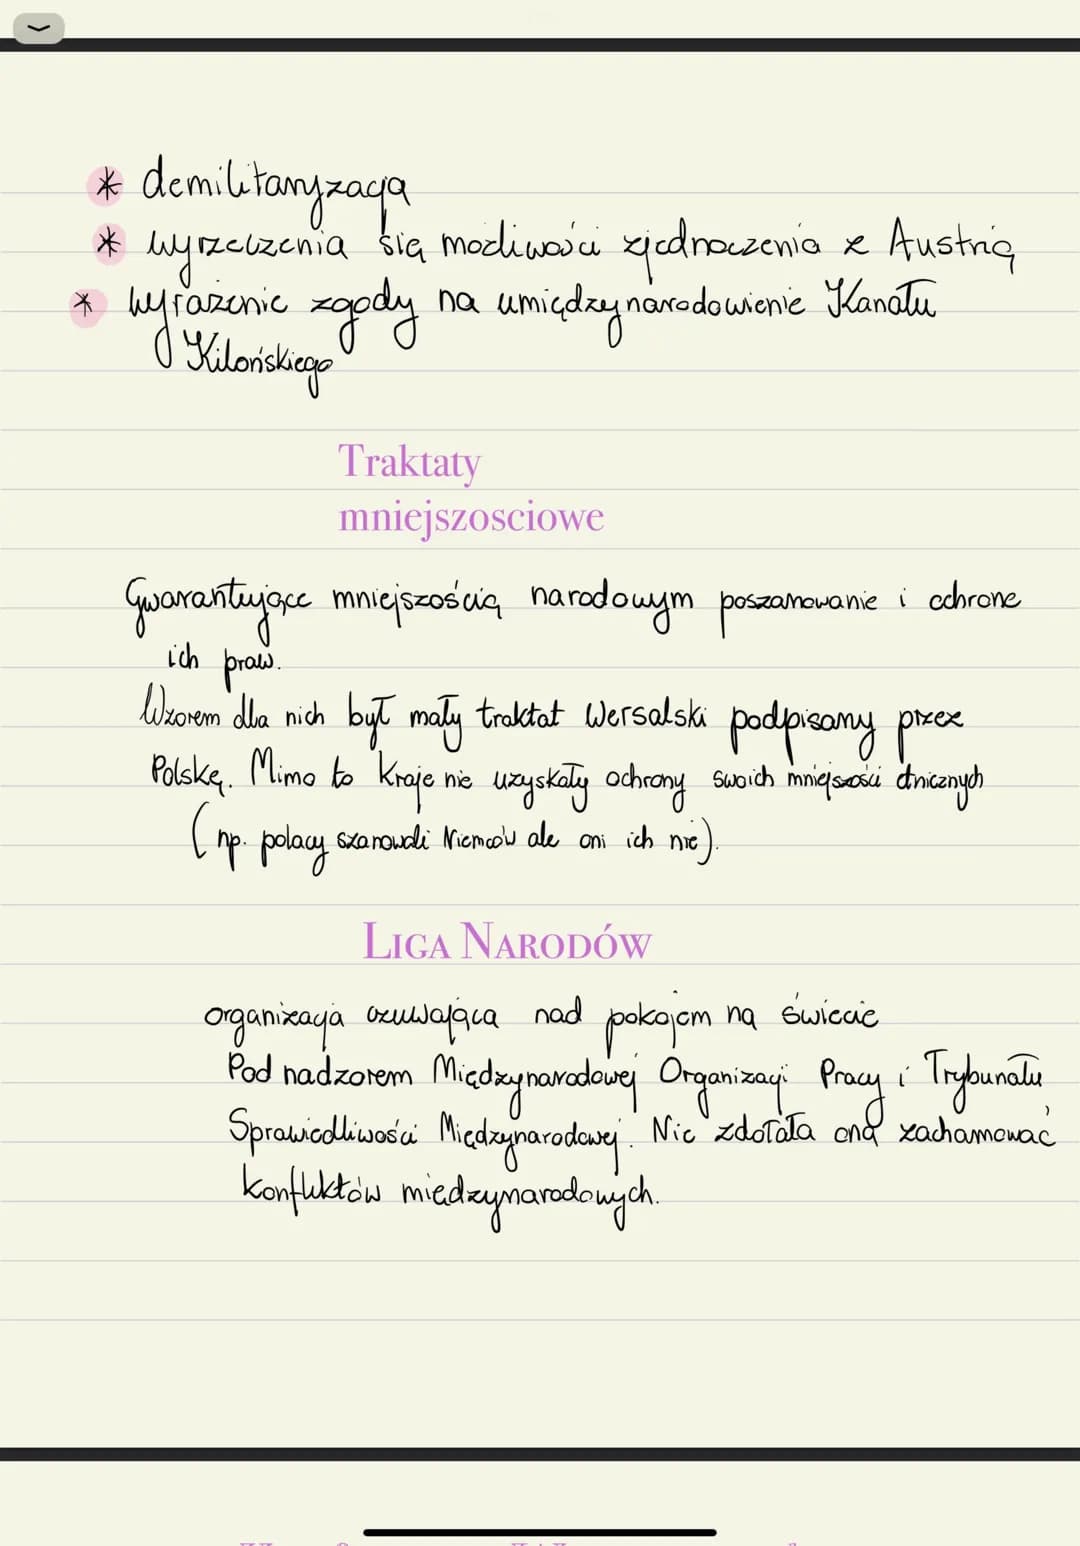 * demilitaryzacja
* wyrzeczenia się możliwości zjednoczenia z Austrią
* wyrażenie zgody na umiędzynarodowienie Kanału
Kilońskiego
Traktaty
mniejszosciowe
Gwarantujące mniejszością narodowym poszanowanie i ochrone
ich praw.
Wzorem dla nich był mały traktat Wersalski podpisany przez
Polskę. Mimo to Kraje nie uzyskały ochrony swoich mniejszości etnicznych
(np. polacy szanowali Niemców ale oni ich nie).
LIGA NARODÓW
organizacja czuwająca nad pokojem na świecie
Pod nadzorem Międzynarodowej Organizacji Pracy i Trybunału
Sprawiedliwości Międzynarodowej. Nie zdołała ona zachamować
konfliktów miedzynarodowych.